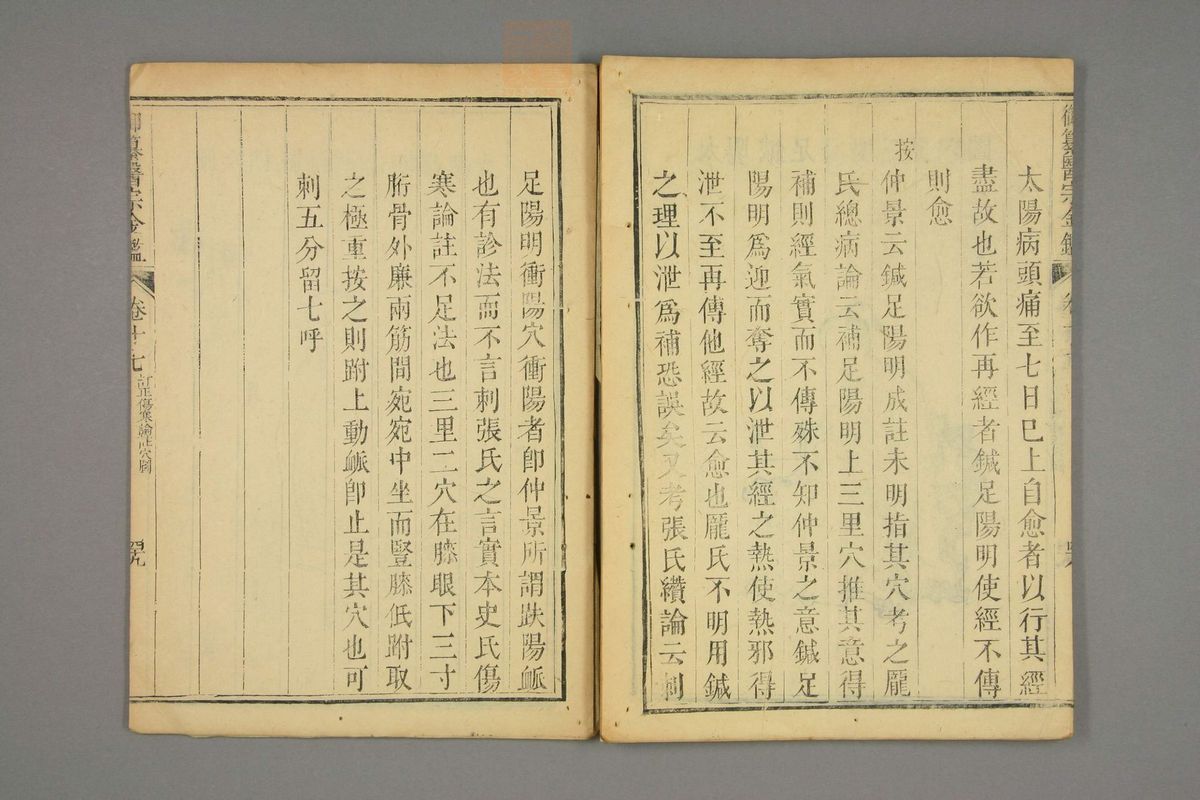 御纂醫宗金鑑
太陽病頭痛至七日巳上自愈者以行其經
盡故也若欲作再經者鍼足陽明使經不傳
則愈
按
仲景云鍼足陽明成註未明指其穴考之龐
氏總病論云補足陽明上三里穴推其意得
補則經氣實而不傳殊不知仲景之意鍼足
陽明爲迎而奪之以泄其經之熱使熱邪得
泄不至再傳他經故云愈也龐氏不明用鍼
之理以泄爲補恐誤矣又考張氏纘論云刺
足陽明衝陽穴衝陽者卽仲景所謂趺陽脈
也有診法而不言刺張氏之言實本史氏傷
寒論註不足法也三里二穴在膝眼下三寸
胻骨外廉兩筋間宛宛中坐而豎膝低跗取
之極重按之則跗上動脈卽止是其穴也可
刺五分留七呼
御纂醫宗金鑑 卷十七 訂正傷寒論註穴圖 四九